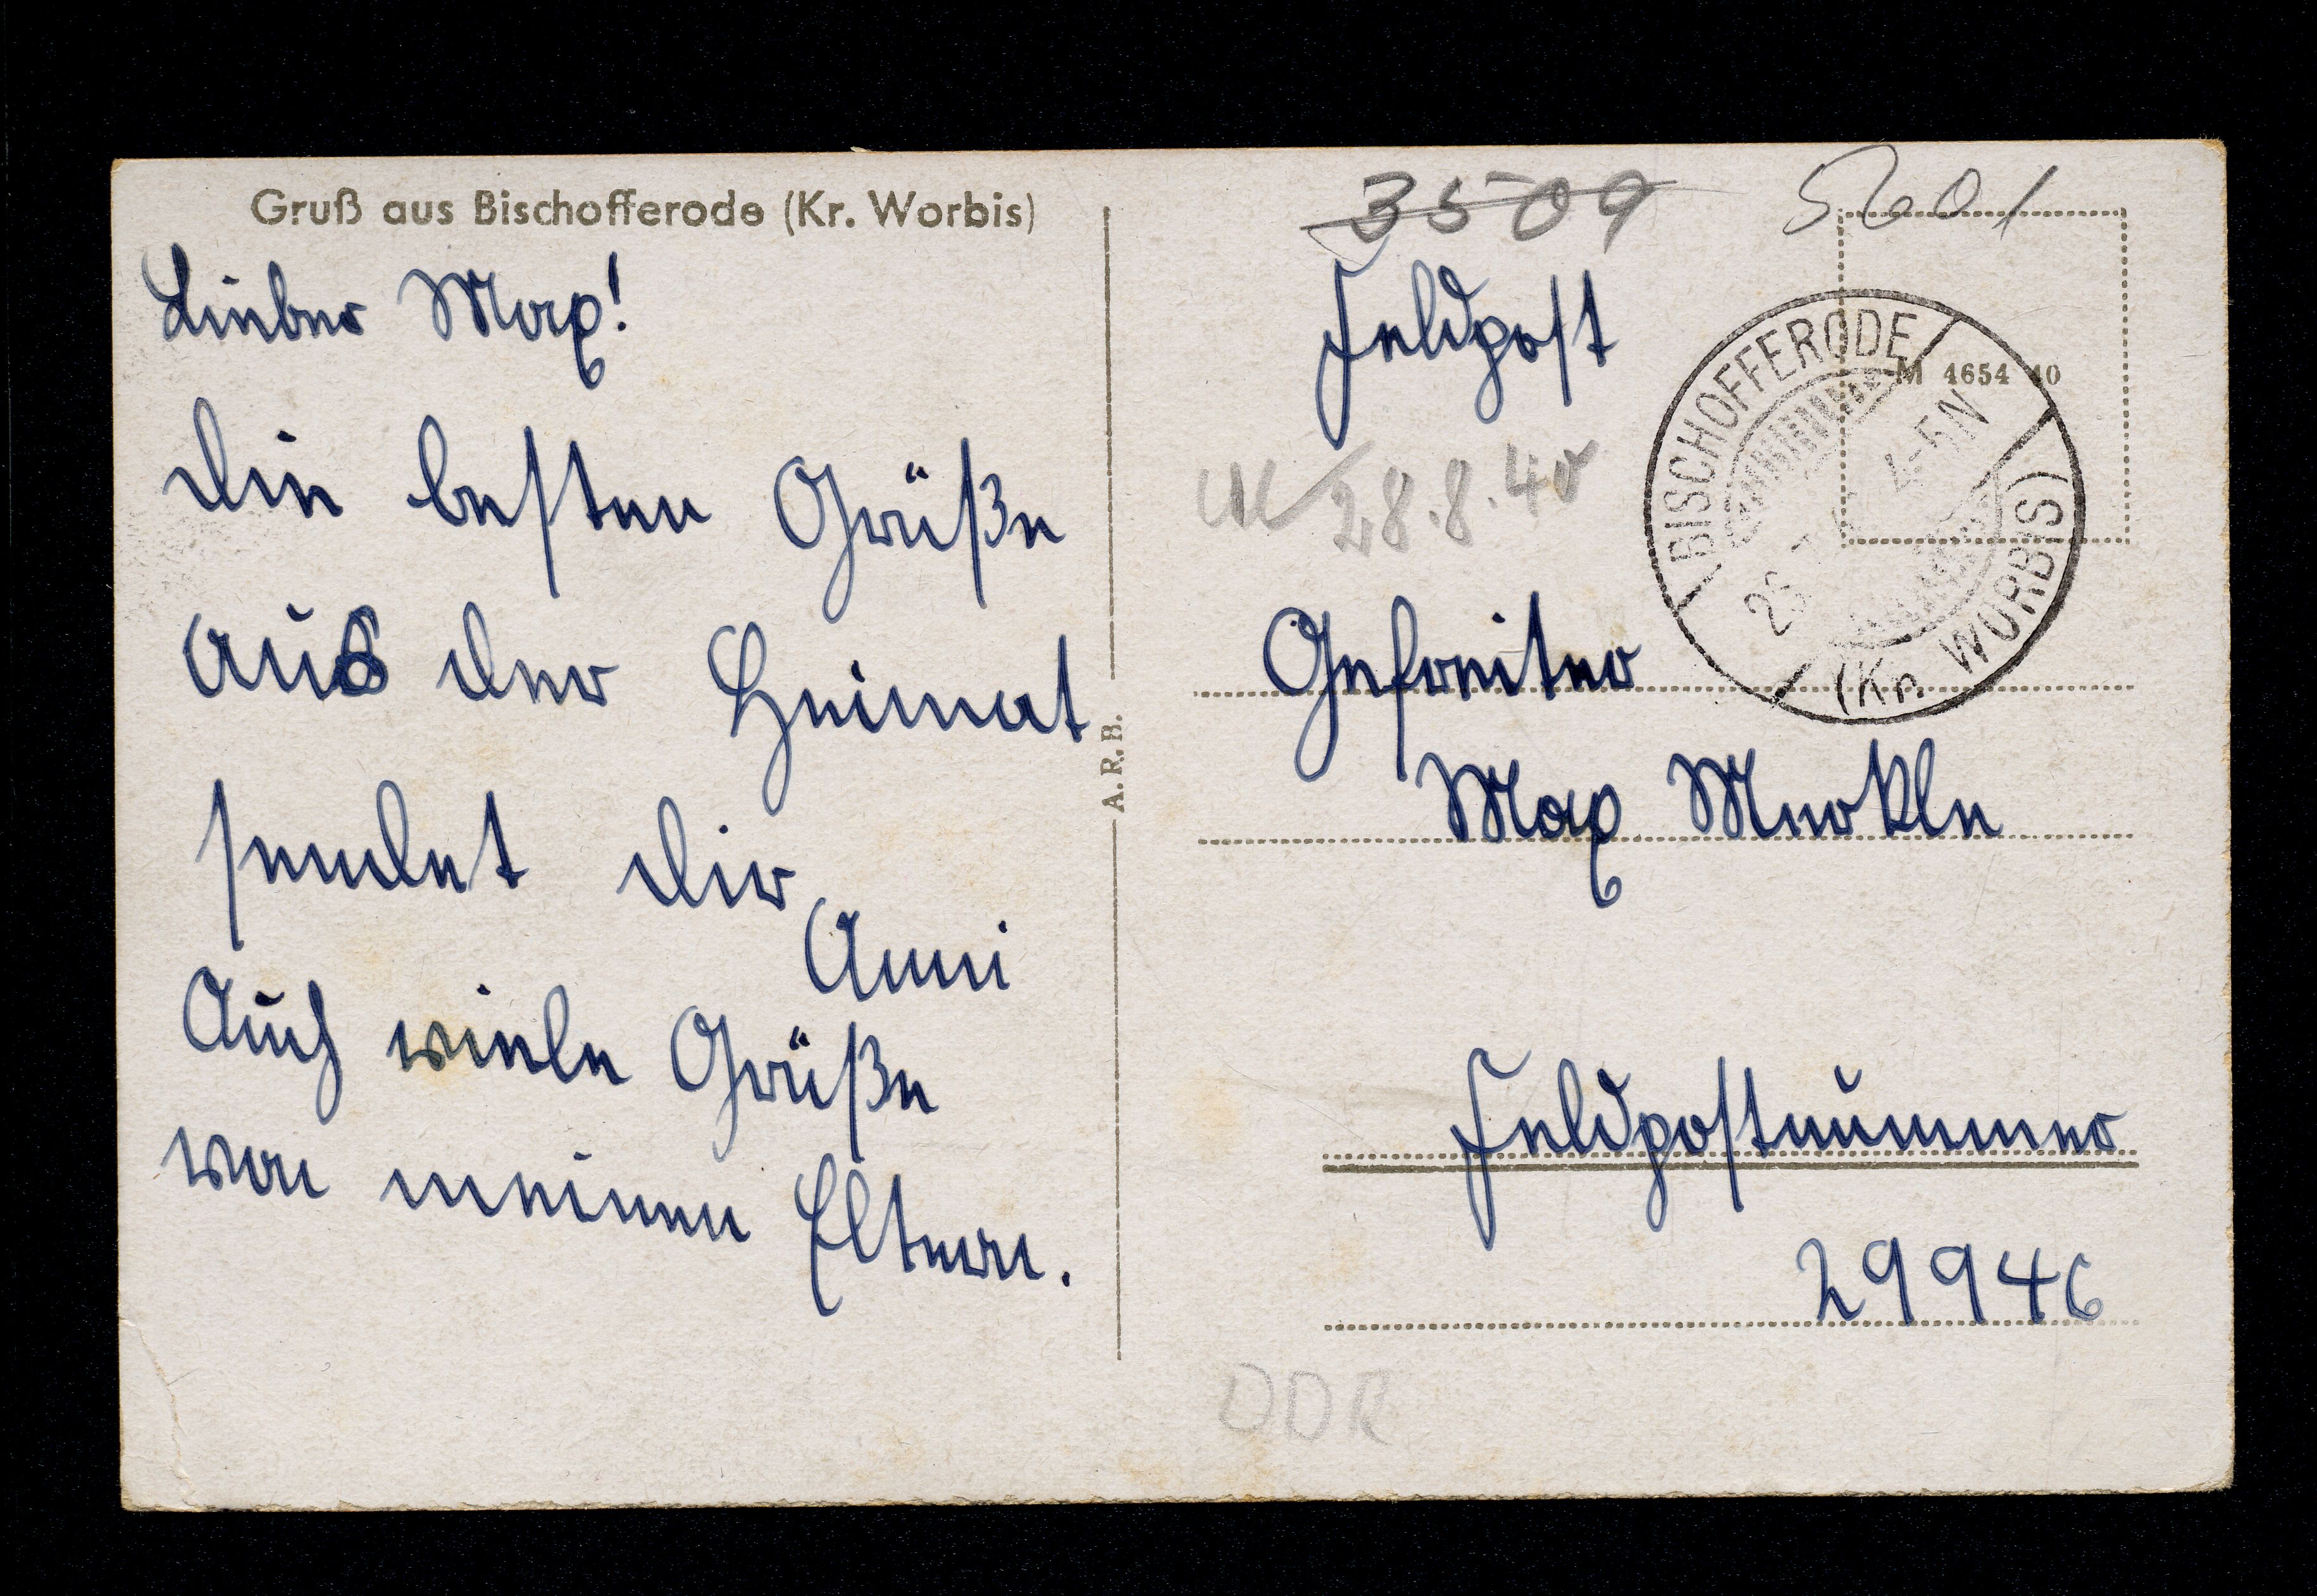 Gruß aus Bischofferode (Kr. Worbis)
Lieber Max!
die besten Grüße
aus der Heimat
sendet dir
Anni
Auch viele Grüße
von meinen Eltern.
A. R. B.
3509
Feldpost
28.8.40
M 4654 40
BISCHOFFERODE
(Kr. WORBIS)
Gefreiter
Max Merkle
Feldpostnummer
29946
DDR